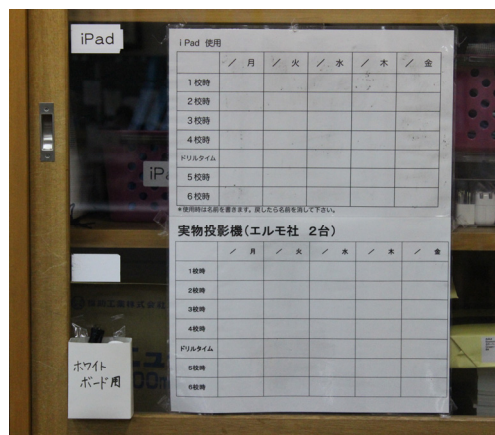 iPad
i Pad 使用
／ 月 ／ 火 ／ 水 ／ 木 ／ 金
1校時
2校時
3校時
4校時
ドリルタイム
5校時
6校時
＊使用時は名前を書きます。戻したら名前を消して下さい。
実物投影機(エルモ社 2台)
／ 月 ／ 火 ／ 水 ／ 木 ／ 金
1校時
2校時
3校時
4校時
ドリルタイム
5校時
6校時
iPa
ホワイト
ボード用